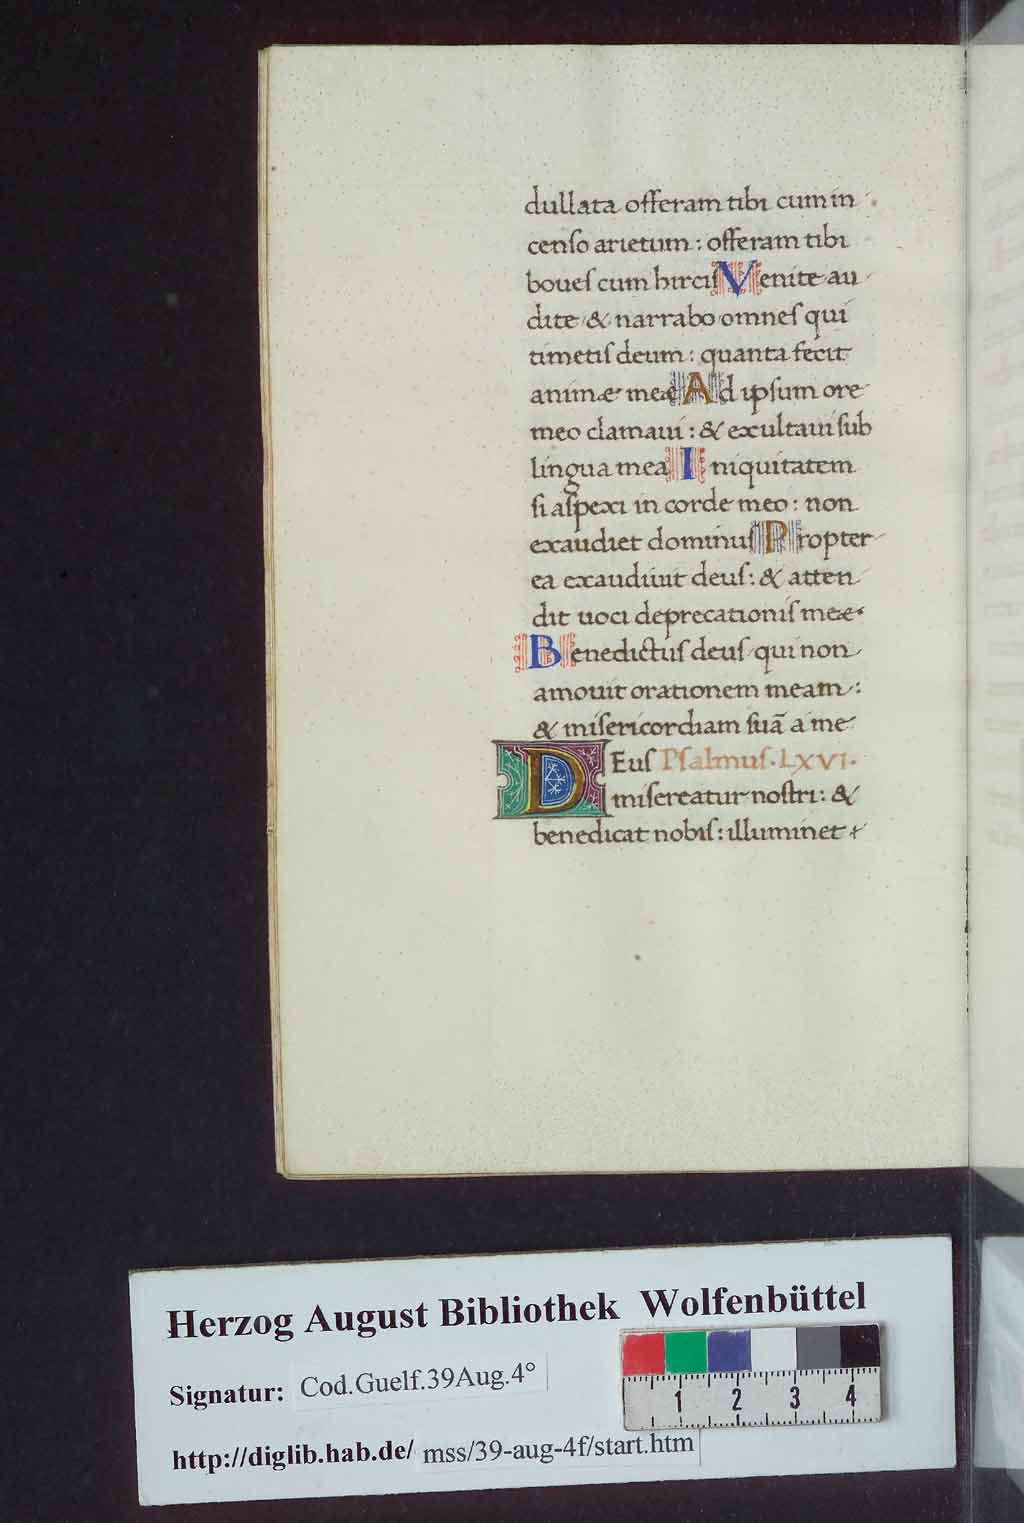 dullata offeram tibi cum in
cenſo arietum : offeram tibi
boueſ cum hirciſ Venite au
dite & narrabo omneſ qui
timetiſ deum : quanta fecit
animæ meæ Ad ipſum ore
meo clamaui : & exultaui ſub
lingua mea Iniquitatem
ſi aſpexi in corde meo : non
exaudiet dominuſ Propter
ea exaudiuit deuſ : & atten
dit uoci deprecationiſ meæ
Benedictuſ deuſ qui non
amouit orationem meam :
& miſericordiam ſuā a me
DEuſ Pſalmuſ · LXVI ·
miſereatur noſtri : &
benedicat nobiſ : illuminet
Herzog August Bibliothek Wolfenbüttel
Signatur: Cod.Guelf.39Aug.4°
http://diglib.hab.de/ mss/39-aug-4f/start.htm
1 2 3 4